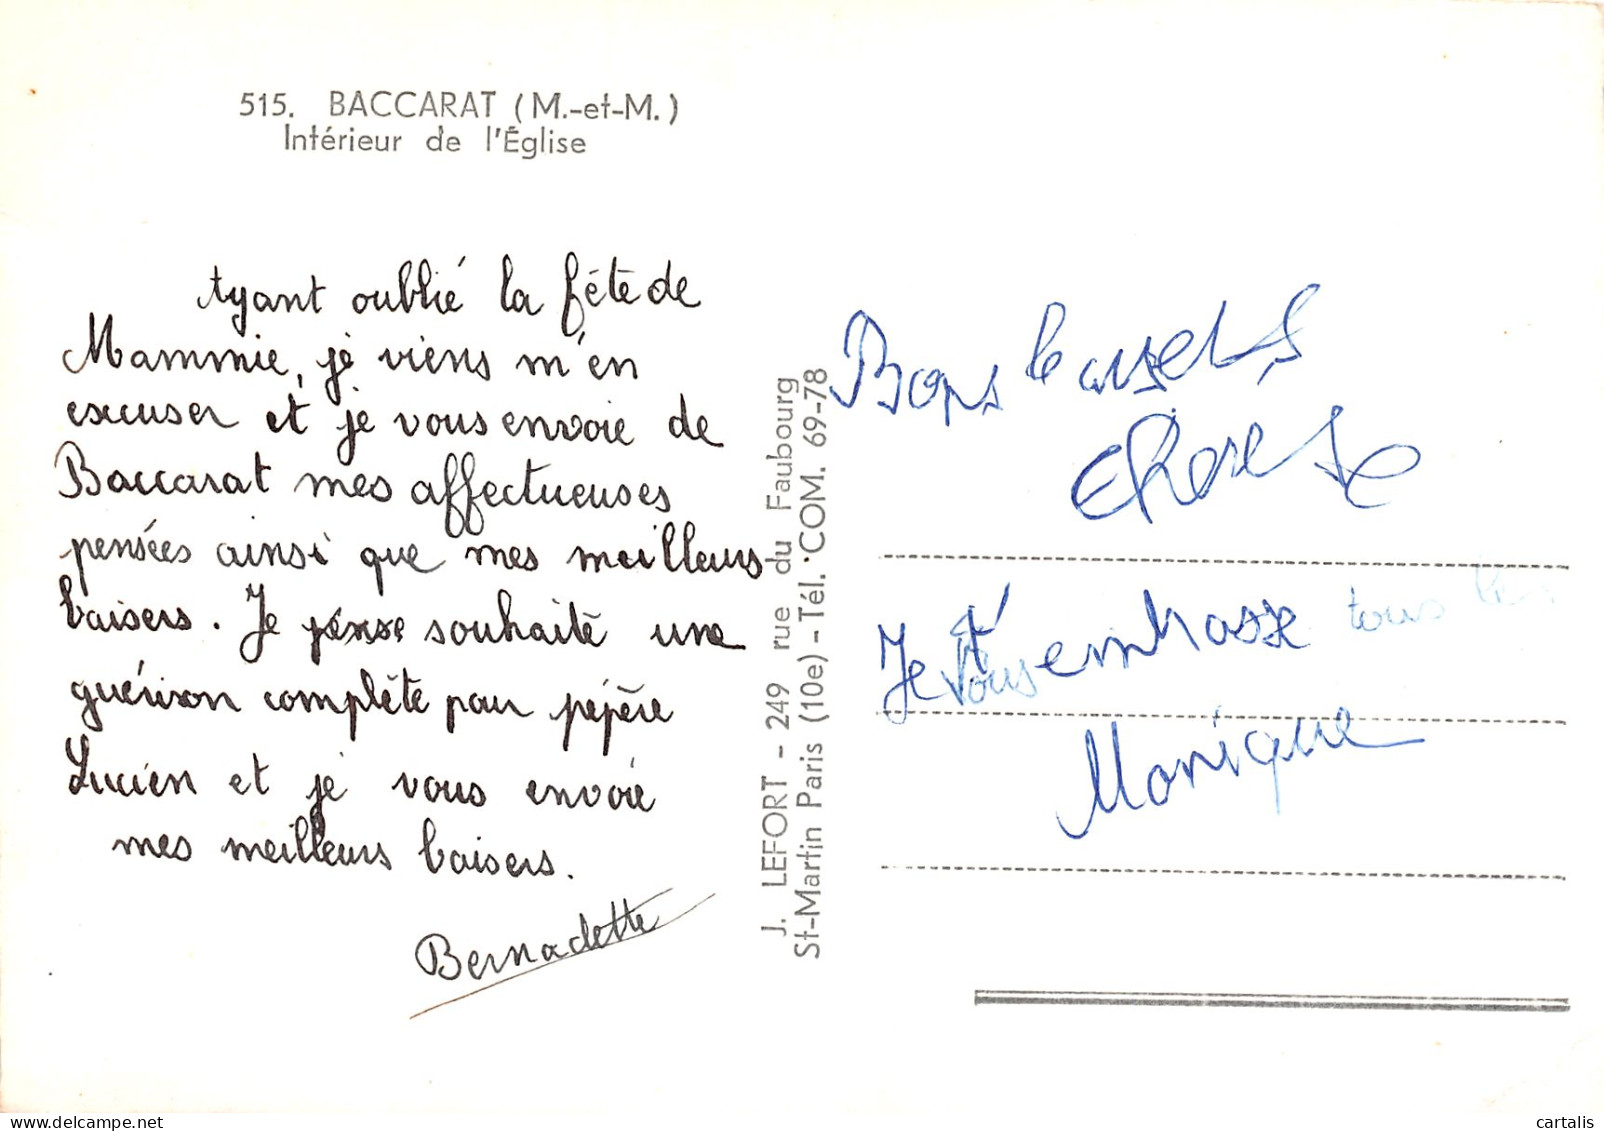 515. BACCARAT (M.-et-M.)
Intérieur de l'Église
Ayant oublié la fête de
Mammie, je viens m'en
excuser et je vous envoie de
Baccarat mes affectueuses
pensées ainsi que mes meilleurs
baisers. Je souhaite une
guérison complète pour pépère
Lucien et je vous envoie
mes meilleurs baisers.
Bernadette
J. LEFORT - 249 rue du Faubourg
St-Martin Paris (10e) - Tél. COM. 69-78
Bons baisers
Je vous embrasse tous les
Monique
cartalis